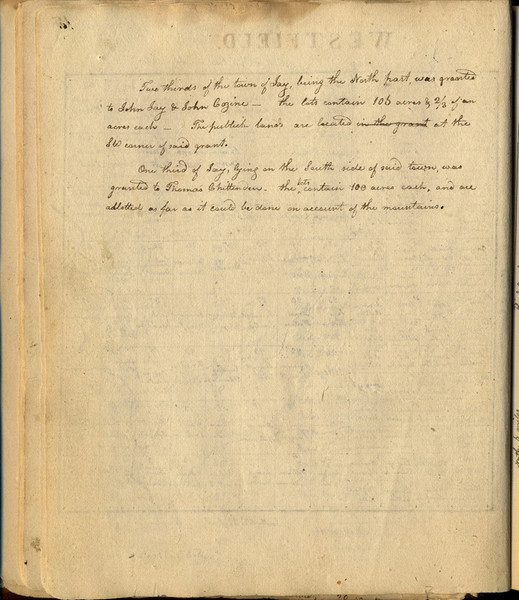 WESTFIELD.
Two thirds of the town of Jay, being the North part, was granted
to John Jay & John Cozine — the lots contain 106 acres & 2/3 of an
acres each — The publick lands are located in the grant at the
SW corner of said grant.
One third of Jay, lying on the South side of said town, was
granted to Thomas Chittenden. the lots contain 103 acres each, and are
allotted as far as it could be done on account of the mountains.